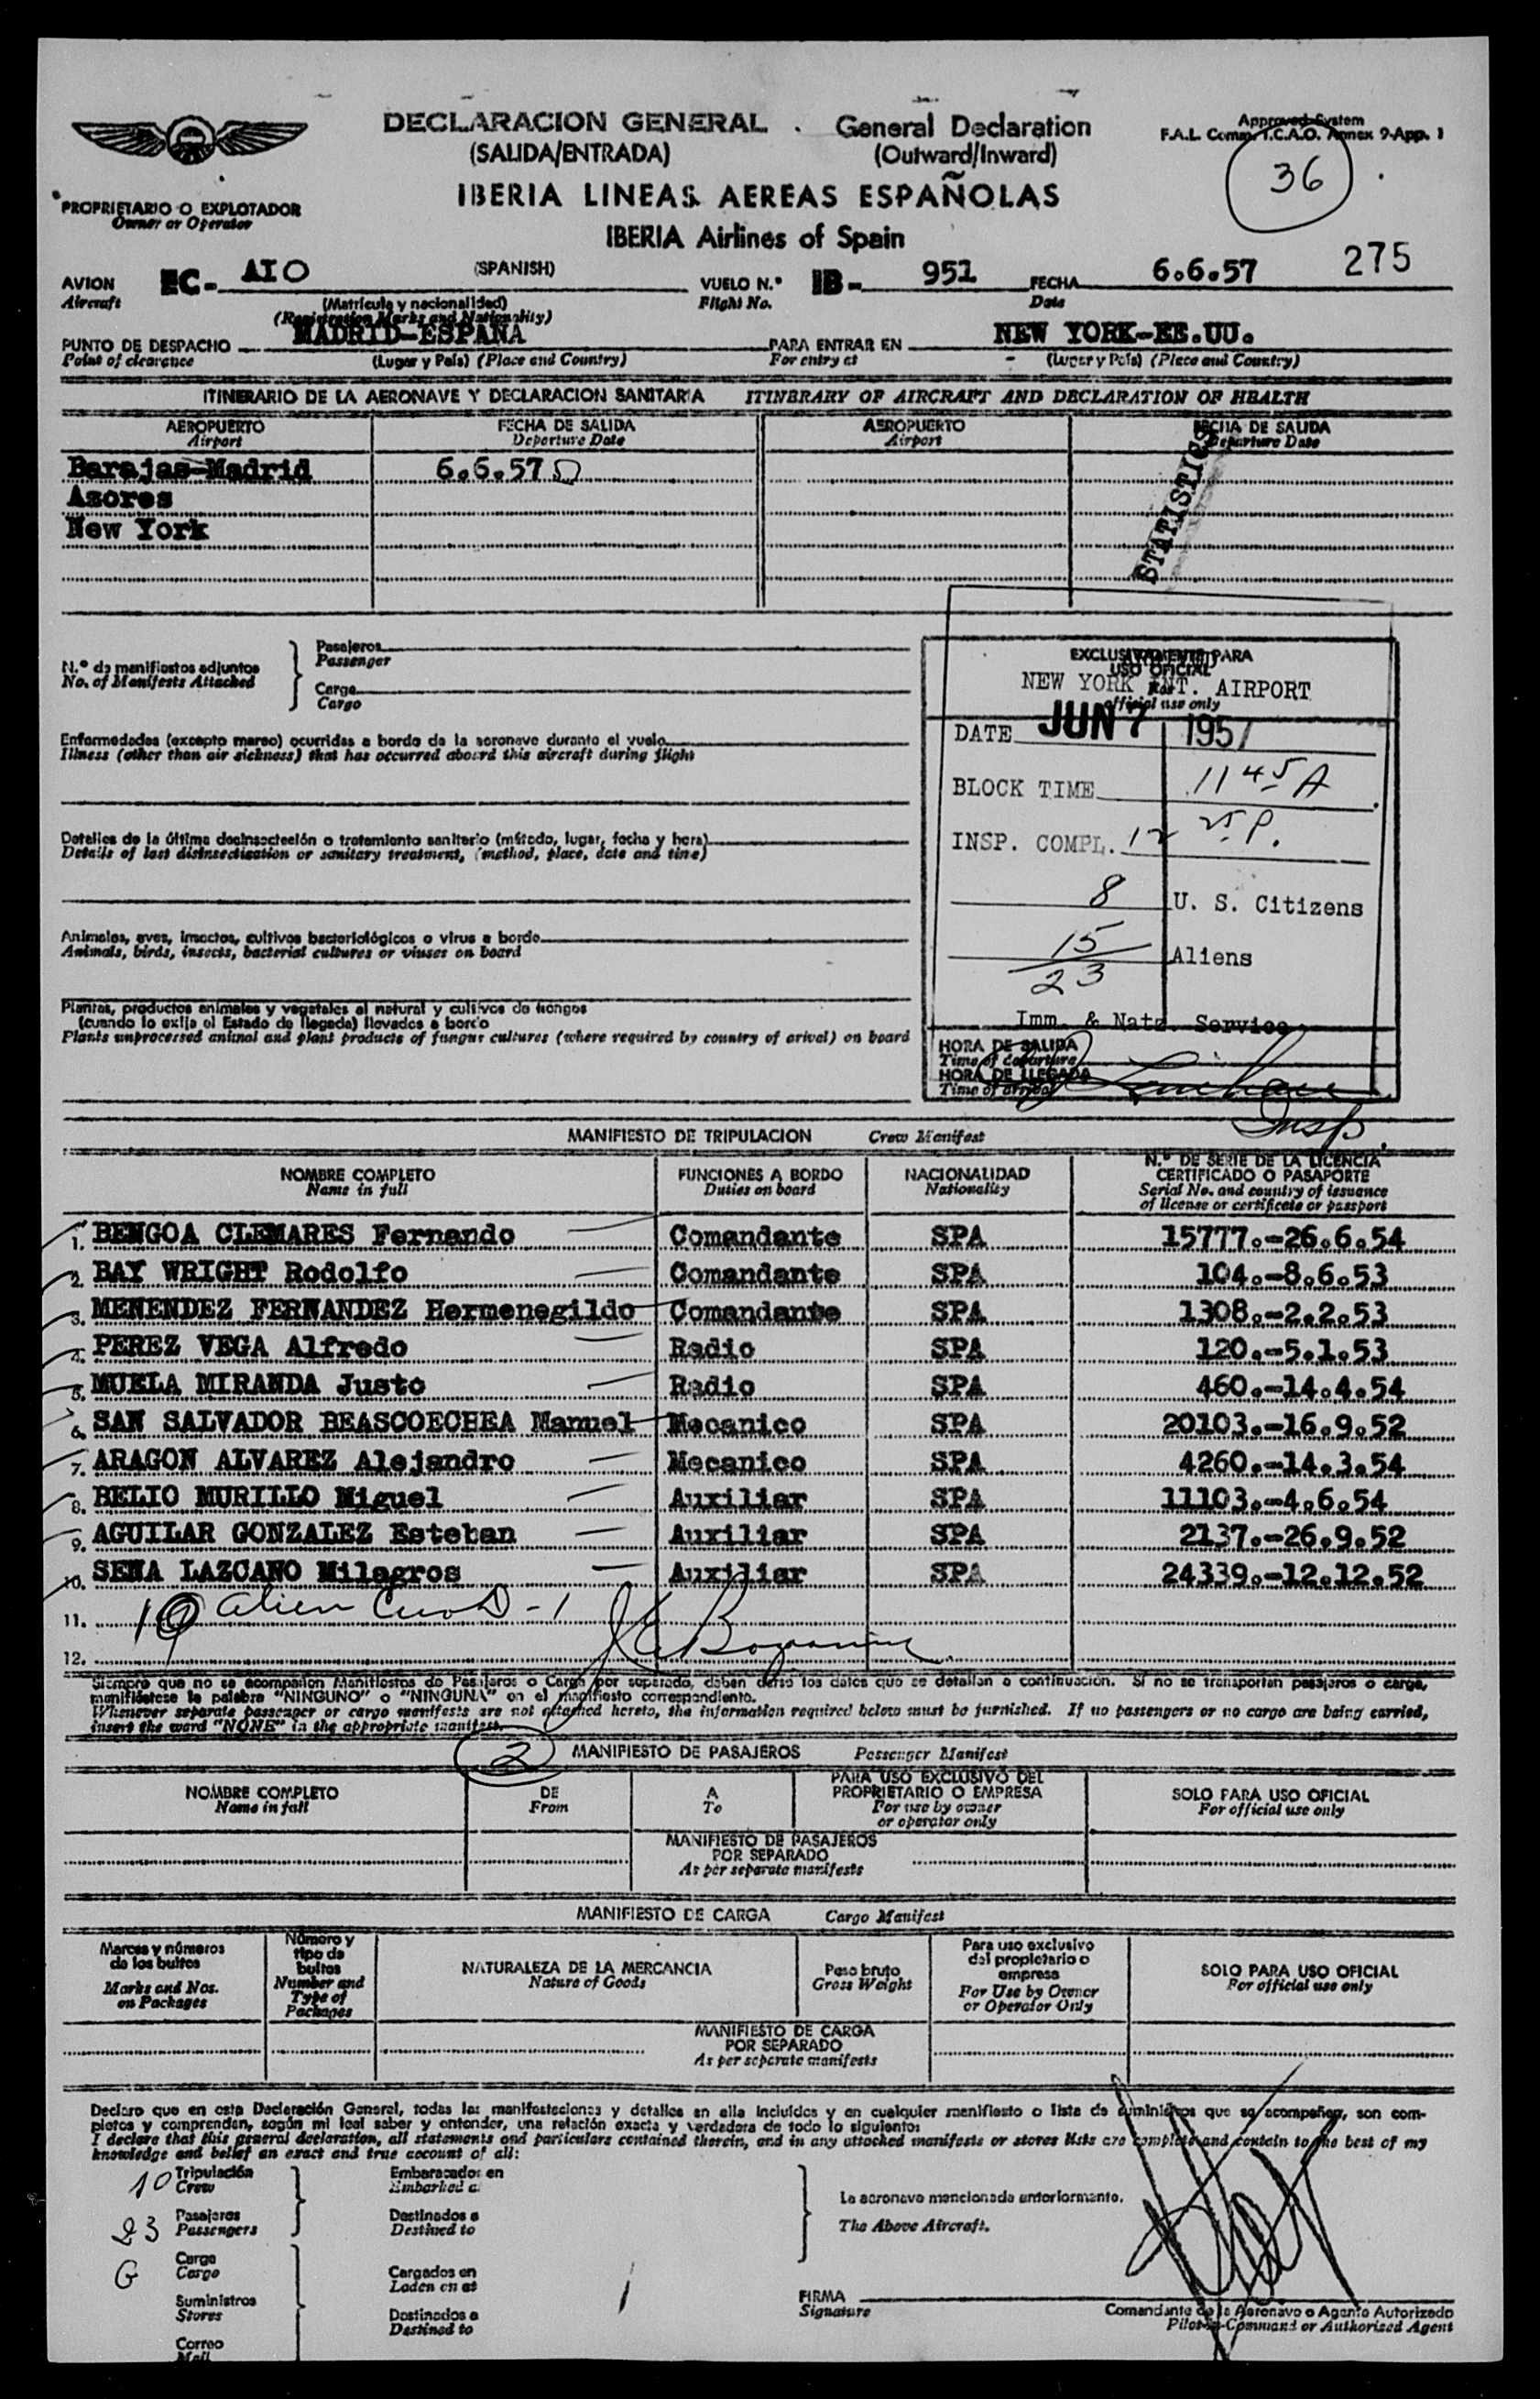 DECLARACION GENERAL . General Declaration
(SALIDA/ENTRADA) (Outward/Inward)
Approved System
F.A.L. Comm. I.C.A.O. Annex 9-App. 1
36
IBERIA LINEAS AEREAS ESPAÑOLAS
PROPRIETARIO O EXPLOTADOR
Owner or Operator
IBERIA Airlines of Spain
275
AVION EC- AIO (SPANISH) VUELO N.º IB- 951 FECHA 6.6.57
Aircraft (Matrícula y nacionalidad) Flight No. Date
(Registration Marks and Nationality)
PUNTO DE DESPACHO MADRID-ESPAÑA PARA ENTRAR EN NEW YORK-EE.UU.
Point of clearance (Lugar y País) (Place and Country) For entry at (Lugar y País) (Place and Country)
ITINERARIO DE LA AERONAVE Y DECLARACION SANITARIA ITINERARY OF AIRCRAFT AND DECLARATION OF HEALTH
AEROPUERTO FECHA DE SALIDA AEROPUERTO FECHA DE SALIDA
Airport Departure Date Airport Departure Date
Barajas-Madrid 6.6.57
Azores
New York
STATISTICS
N.º de manifiestos adjuntos
No. of Manifests Attached
Pasajeros
Passenger
Carga
Cargo
EXCLUSIVAMENTE PARA
USO OFICIAL
NEW YORK INT. AIRPORT
official use only
DATE JUN 7 1957
BLOCK TIME 11 45 A
INSP. COMPL. 12 25 P.
8 U. S. Citizens
15 Aliens
23
Imm. & Natz. Service
HORA DE SALIDA
Time of departure
HORA DE LLEGADA
Time of arrival
Insp.
Enfermedades (excepto mareo) ocurridas a bordo de la aeronave durante el vuelo
Illness (other than air sickness) that has occurred aboard this aircraft during flight
Detalles de la última desinsectación o tratamiento sanitario (método, lugar, fecha y hora)
Details of last disinsectisation or sanitary treatment, (method, place, date and time)
Animales, aves, insectos, cultivos bacteriológicos o virus a bordo
Animals, birds, insects, bacterial cultures or viuses on board
Plantas, productos animales y vegetales al natural y cultivos de hongos
(cuando lo exija el Estado de llegada) llevados a bordo
Plants unprocessed animal and plant products of fungus cultures (where required by country of arival) on board
MANIFIESTO DE TRIPULACION Crew Manifest
NOMBRE COMPLETO FUNCIONES A BORDO NACIONALIDAD N.º DE SERIE DE LA LICENCIA CERTIFICADO O PASAPORTE
Name in full Duties on board Nationality Serial No. and country of issuance of license or certificate or passport
1. BENGOA CLEMARES Fernando Comandante SPA 15777.-26.6.54
2. BAY WRIGHT Rodolfo Comandante SPA 104.-8.6.53
3. MENENDEZ FERNANDEZ Hermenegildo Comandante SPA 1308.-2.2.53
4. PEREZ VEGA Alfredo Radio SPA 120.-5.1.53
5. MUELA MIRANDA Justo Radio SPA 460.-14.4.54
6. SAN SALVADOR BEASCOECHEA Manuel Mecanico SPA 20103.-16.9.52
7. ARAGON ALVAREZ Alejandro Mecanico SPA 4260.-14.3.54
8. BELIO MURILLO Miguel Auxiliar SPA 11103.-4.6.54
9. AGUILAR GONZALEZ Esteban Auxiliar SPA 2137.-26.9.52
10. SENA LAZCANO Milagros Auxiliar SPA 24339.-12.12.52
11. 10 alien Crew D-1
12.
Siempre que no se acompañen Manifiestos de Pasajeros o Carga por separado, deben darse los datos que se detallan a continuación. Si no se transportan pasajeros o carga,
manifiéstese la palabra "NINGUNO" o "NINGUNA" en el manifiesto correspondiente.
Whenever separate passenger or cargo manifests are not attached hereto, the information required below must be furnished. If no passengers or no cargo are being carried,
insert the word "NONE" in the appropriate manifest.
2 MANIFIESTO DE PASAJEROS Passenger Manifest
NOMBRE COMPLETO DE A PARA USO EXCLUSIVO DEL PROPRIETARIO O EMPRESA SOLO PARA USO OFICIAL
Name in full From To For use by owner or operator only For official use only
MANIFIESTO DE PASAJEROS
POR SEPARADO
As per separate manifests
MANIFIESTO DE CARGA Cargo Manifest
Marcas y números de los bultos Número y tipo de bultos NATURALEZA DE LA MERCANCIA Peso bruto Para uso exclusivo del propietario o empresa SOLO PARA USO OFICIAL
Marks and Nos. on Packages Number and Type of Packages Nature of Goods Gross Weight For Use by Owner or Operator Only For official use only
MANIFIESTO DE CARGA
POR SEPARADO
As per separate manifests
Declaro que en esta Declaración General, todas las manifestaciones y detalles en ella incluidos y en cualquier manifiesto o lista de suministros que se acompañen, son com-
pletos y comprenden, según mi leal saber y entender, una relación exacta y verdadera de todo lo siguiente:
I declare that this general declaration, all statements and particulars contained therein, and in any attached manifests or stores lists are complete and contain to the best of my
knowledge and belief an exact and true account of all:
10 Tripulación Embarcados en
Crew Embarked at
23 Pasajeros Destinados a
Passengers Destined to
La aeronave mencionada anteriormente.
The Above Aircraft.
G Carga Cargados en
Cargo Laden on at
Suministros Destinados a
Stores Destined to
Correo
Mail
FIRMA
Signature
Comandante de la Aeronave o Agente Autorizado
Pilot-in-Command or Authorized Agent